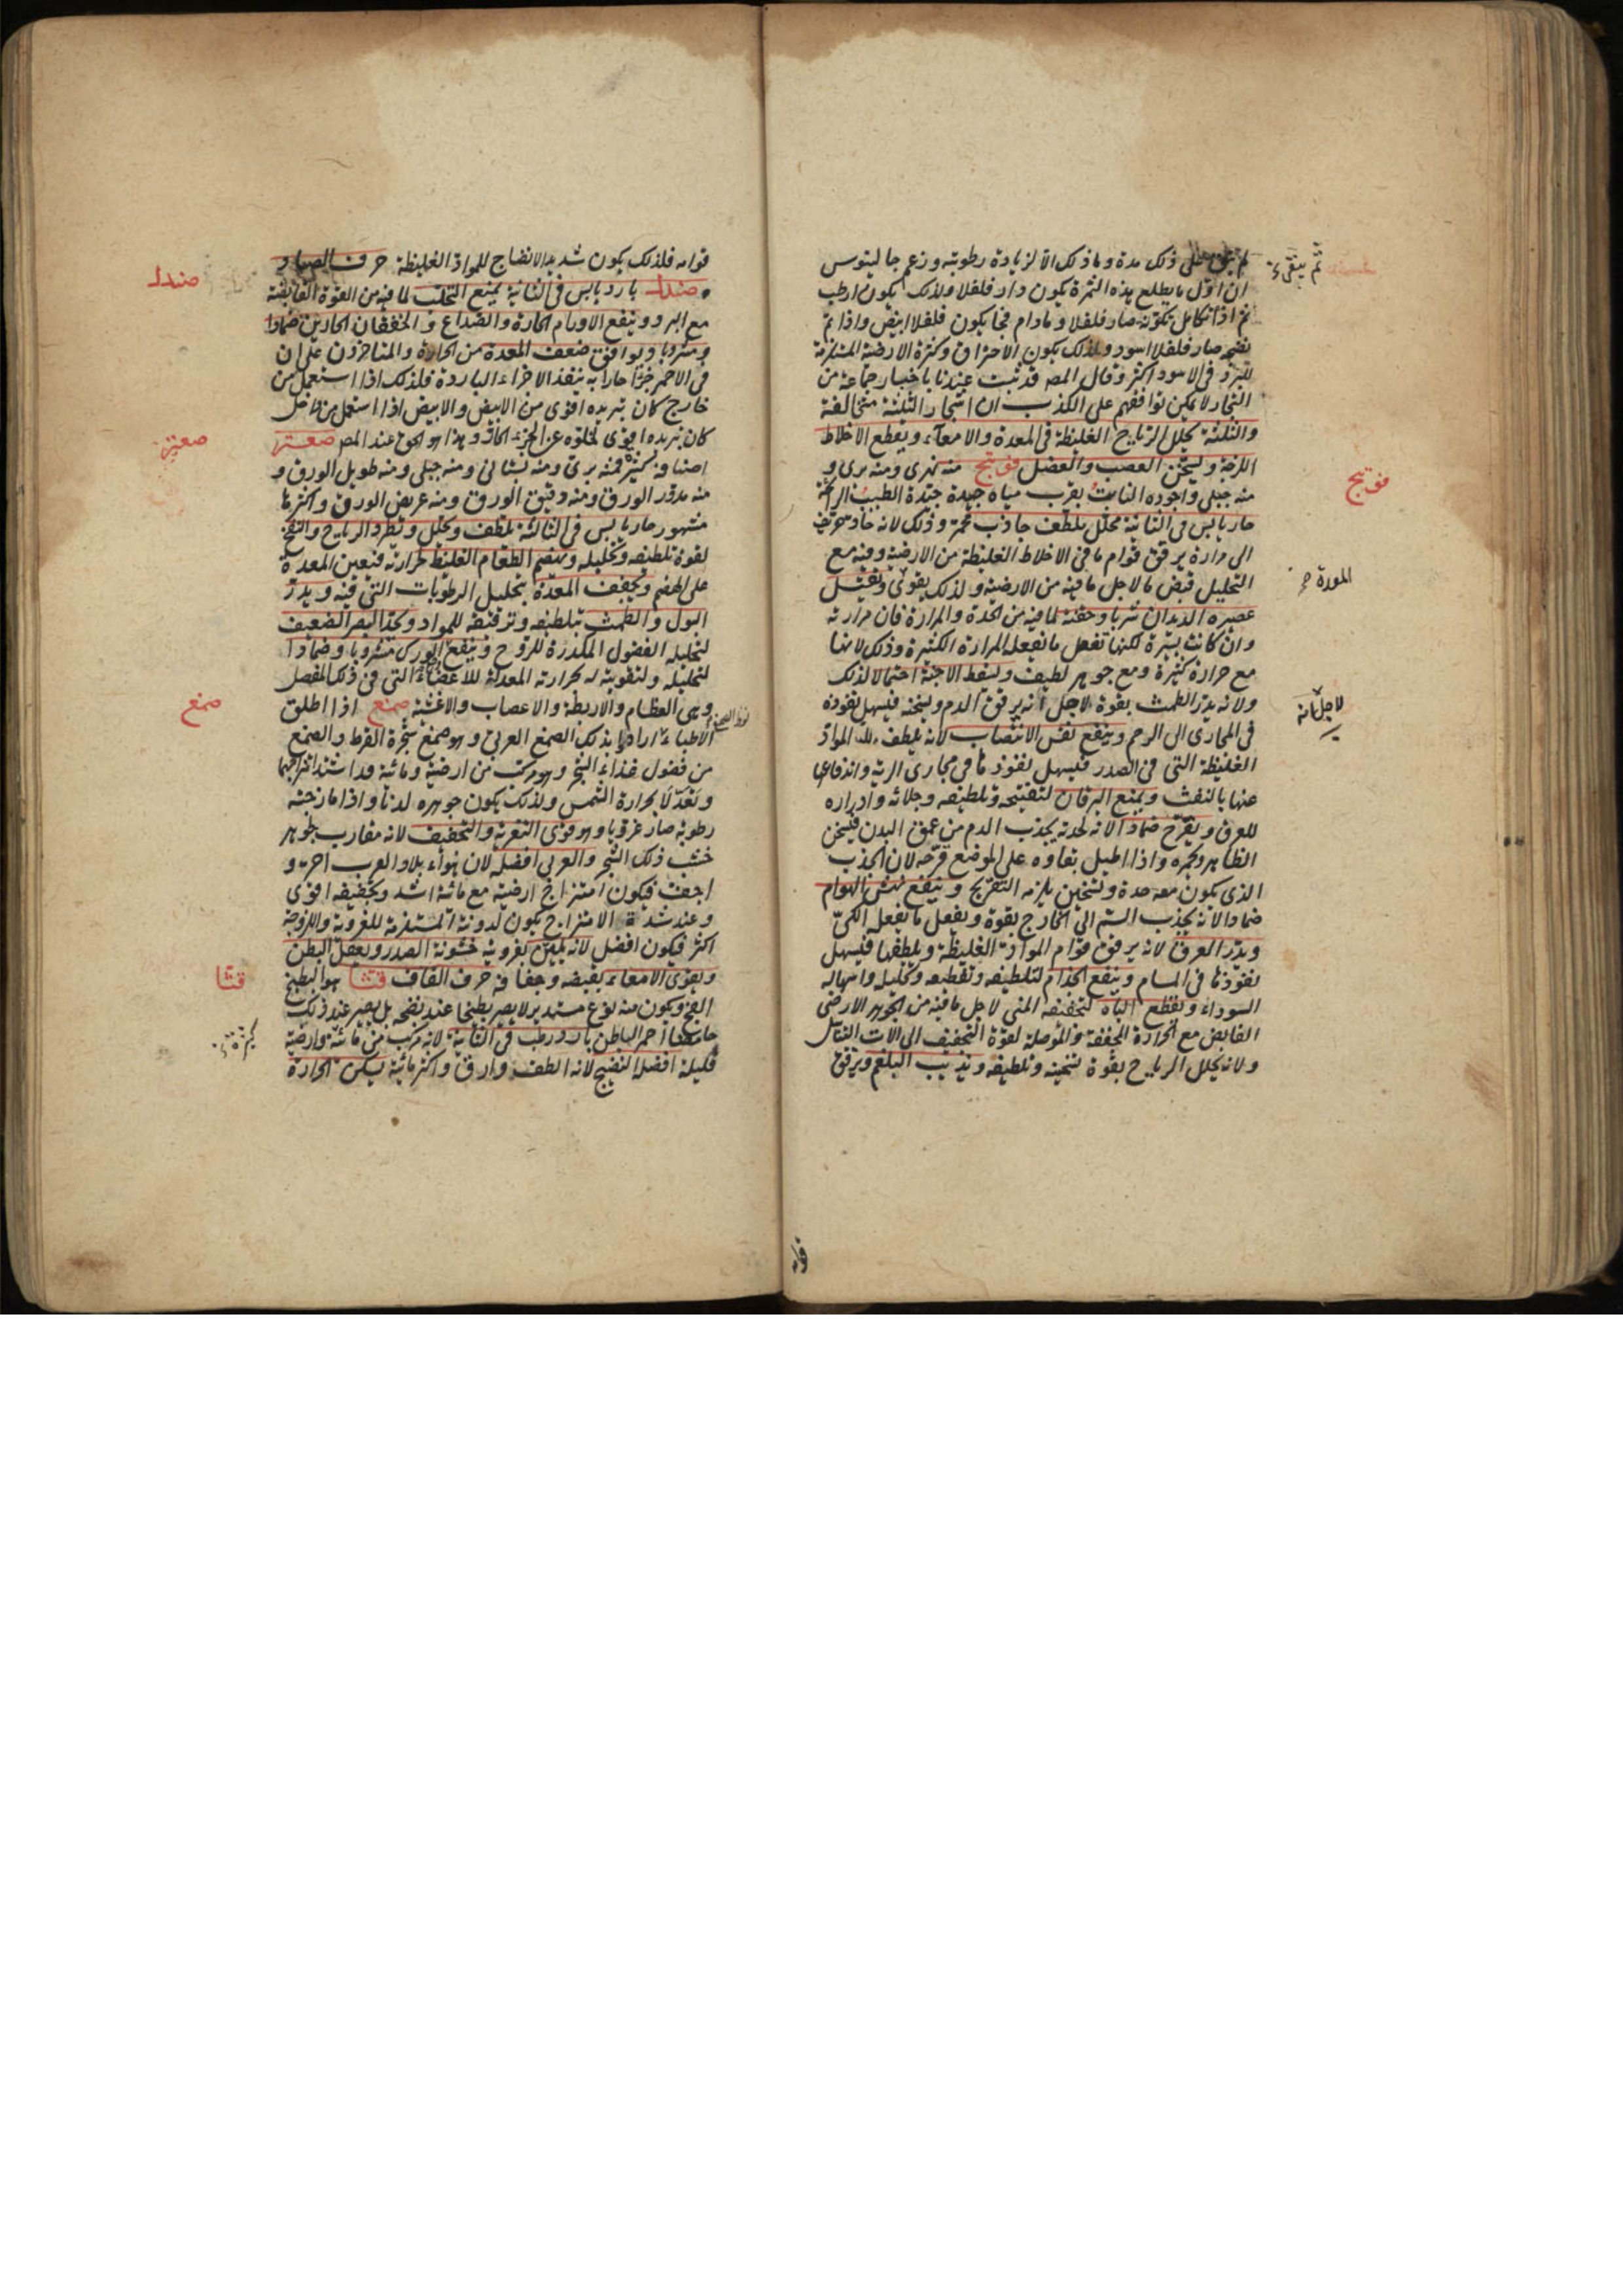 لم يبق على ذلك مدة وما ذلك الا لزيادة رطوبته وزعم جالينوس
ان اول ما يطلع هذه الثمرة يكون دار فلفلا ولذلك يكون ارطب
ثم اذا تكامل تكونه صار فلفلا وما دام فجا يكون فلفلا ابيض واذا تم
نضجه صار فلفلا اسود ولذلك يكون الاحتراق وكثرة الارضية المستلزمة
للبرد في الاسود اكثر وقال المصـ قد ثبت عندنا باخبار جماعة من
التجار لا يمكن توافقهم على الكذب ان اشجار الثلثة متخالفة
والثلثة يحلل الرياح الغليظة في المعدة والامعاء ويقطع الاخلاط
اللزجة ويسخن العصب والعضل فوتنج منه نهري ومنه بري و
منه جبلي واجوده النابت بقرب مياه جيدة جيدة الطيب الرائحة
حار يابس في الثانية محلل يلطف جاذب محمر وذلك لانه حاد حريف
الى مرارة يرقق قوام ما في الاخلاط الغليظة من الارضية وفيه مع
التحليل قبض ما لاجل ما فيه من الارضية ولذلك يقوى وتقتل
عصيره الديدان شربا وحقنة لما فيه من الحدة والمرارة فان مرارته
وان كانت يسيرة لكنها تفعل ما تفعله المرارة الكثيرة وذلك لانها
مع حرارة كثيرة ومع جوهر لطيف ويسقط الاجنة احتمالا لذلك
ولانه يدر الطمث بقوة لاجل انه يرقق الدم ويسخنه فيسهل نفوذه
في المجاري الى الرحم وينفع نفس الانتصاب لانه يلطف المواد
الغليظة التي في الصدر فيسهل نفوذها في مجاري الرية واندفاعها
عنها بالنفث ويمنع اليرقان لتفتيحه وتلطيفه وجلائه وادراره
للعرق ويقرح ضمادا لانه لحدته يجذب الدم من عمق البدن فيسخن
الظاهر ويحمره واذا اطيل بقاؤه على الموضع قرحه لان الجذب
الذي يكون معه حدة وتسخين يلزمه التقريح وينفع نهش الهوام
ضمادا لانه يجذب السم الى الخارج بقوة ويفعل ما يفعله الكي
ويدر العرق لانه يرقق قوام المواد الغليظة ويلطفها فيسهل
نفوذها في المسام وينفع الجذام لتلطيفه وتقطيعه وتحليله واسهاله
السوداء ويقطع الباه لتجفيفه المني لاجل ما فيه من الجوهر الارضي
القابض مع الحرارة المجففة والموصلة لقوة التجفيف الى الات التناسل
ولانه يحلل الرياح بقوة تسخينه وتلطيفه ويذيب البلغم ويرقق
ثم يبقى
فوتنج
المودة
لاجل انه
قوامه فلذلك يكون شديد الانضاج للمواد الغليظة حرف الصاد
صندل بارد يابس في الثانية يمنع التحلب لما فيه من القوة القابضة
مع البرد وينفع الاورام الحارة والصداع والخفقان الحارين ضمادا
ومشروبا ويوافق ضعف المعدة من الحارة والمتاخرون على ان
في الاحمر جزءا حارا به ينفذ الاجزاء الباردة فلذلك اذا استعمل من
خارج كان تبريده اقوى من الابيض والابيض اذا استعمل من داخل
كان تبريده اقوى لخلوه عن الجزء الحار وهذا هو الحق عند المصـ صعتر
اصنافه كثيرة فمنه بري ومنه بستاني ومنه جبلي ومنه طويل الورق و
منه مدور الورق ومنه دقيق الورق ومنه عريض الورق واكثرها
مشهور حار يابس في الثالثة يلطف ويحلل ويطرد الرياح والنفخ
لقوة تلطيفه وتحليله ويهضم الطعام الغليظ لحرارته فتعين المعدة
على الهضم ويجفف المعدة بتحليل الرطوبات التي فيه ويدر
البول والطمث بتلطيفه وترقيقه للمواد ويحد البصر الضعيف
لتحليله الفضول المكدرة للروح وينفع الورك مشروبا وضمادا
لتحليله ولتقويته له بحرارته المعدلة للاعضاء التي في ذلك المفصل
وهي العظام والاربطة والاعصاب والاغشية صمغ اذا اطلق
الاطباء ارادوا بذلك الصمغ العربي وهو صمغ شجرة القرظ والصمغ
من فضول غذاء الشجر وهو مركب من ارضية ومائية قد اشتد امتزاجهما
وتعدلا بحرارة الشمس ولذلك يكون جوهره لدنا واذا مازجته
رطوبة صار غرويا وهو قوي التغرية والتجفيف لانه مقارب لجوهر
خشب ذلك الشجر والعربي افضل لان هواء بلاد العرب احر و
اجف فيكون امتزاج ارضيته مع مائيته اشد وتجفيفه اقوى
وعند شدة الامتزاج يكون لدونته المستلزمة للغروية واللزوجة
اكثر فيكون افضل لانه يلين بغرويته خشونة الصدر ويعقل البطن
ويقوي الامعاء بقبضه وجفافه حرف القاف قثا هو البطيخ
الفج ويكون منه نوع مستدير لا يصير بطيخا عند نضجه بل يصير عند ذلك
حامضا احمر الباطن بارد رطب في الثانية لانه مركب من مائية وارضية
قليلة افضله النضيج لانه الطف وارق واكثر مائية يسكن الحرارة
صندل
صعتر
صمغ
قثا
كثيرة